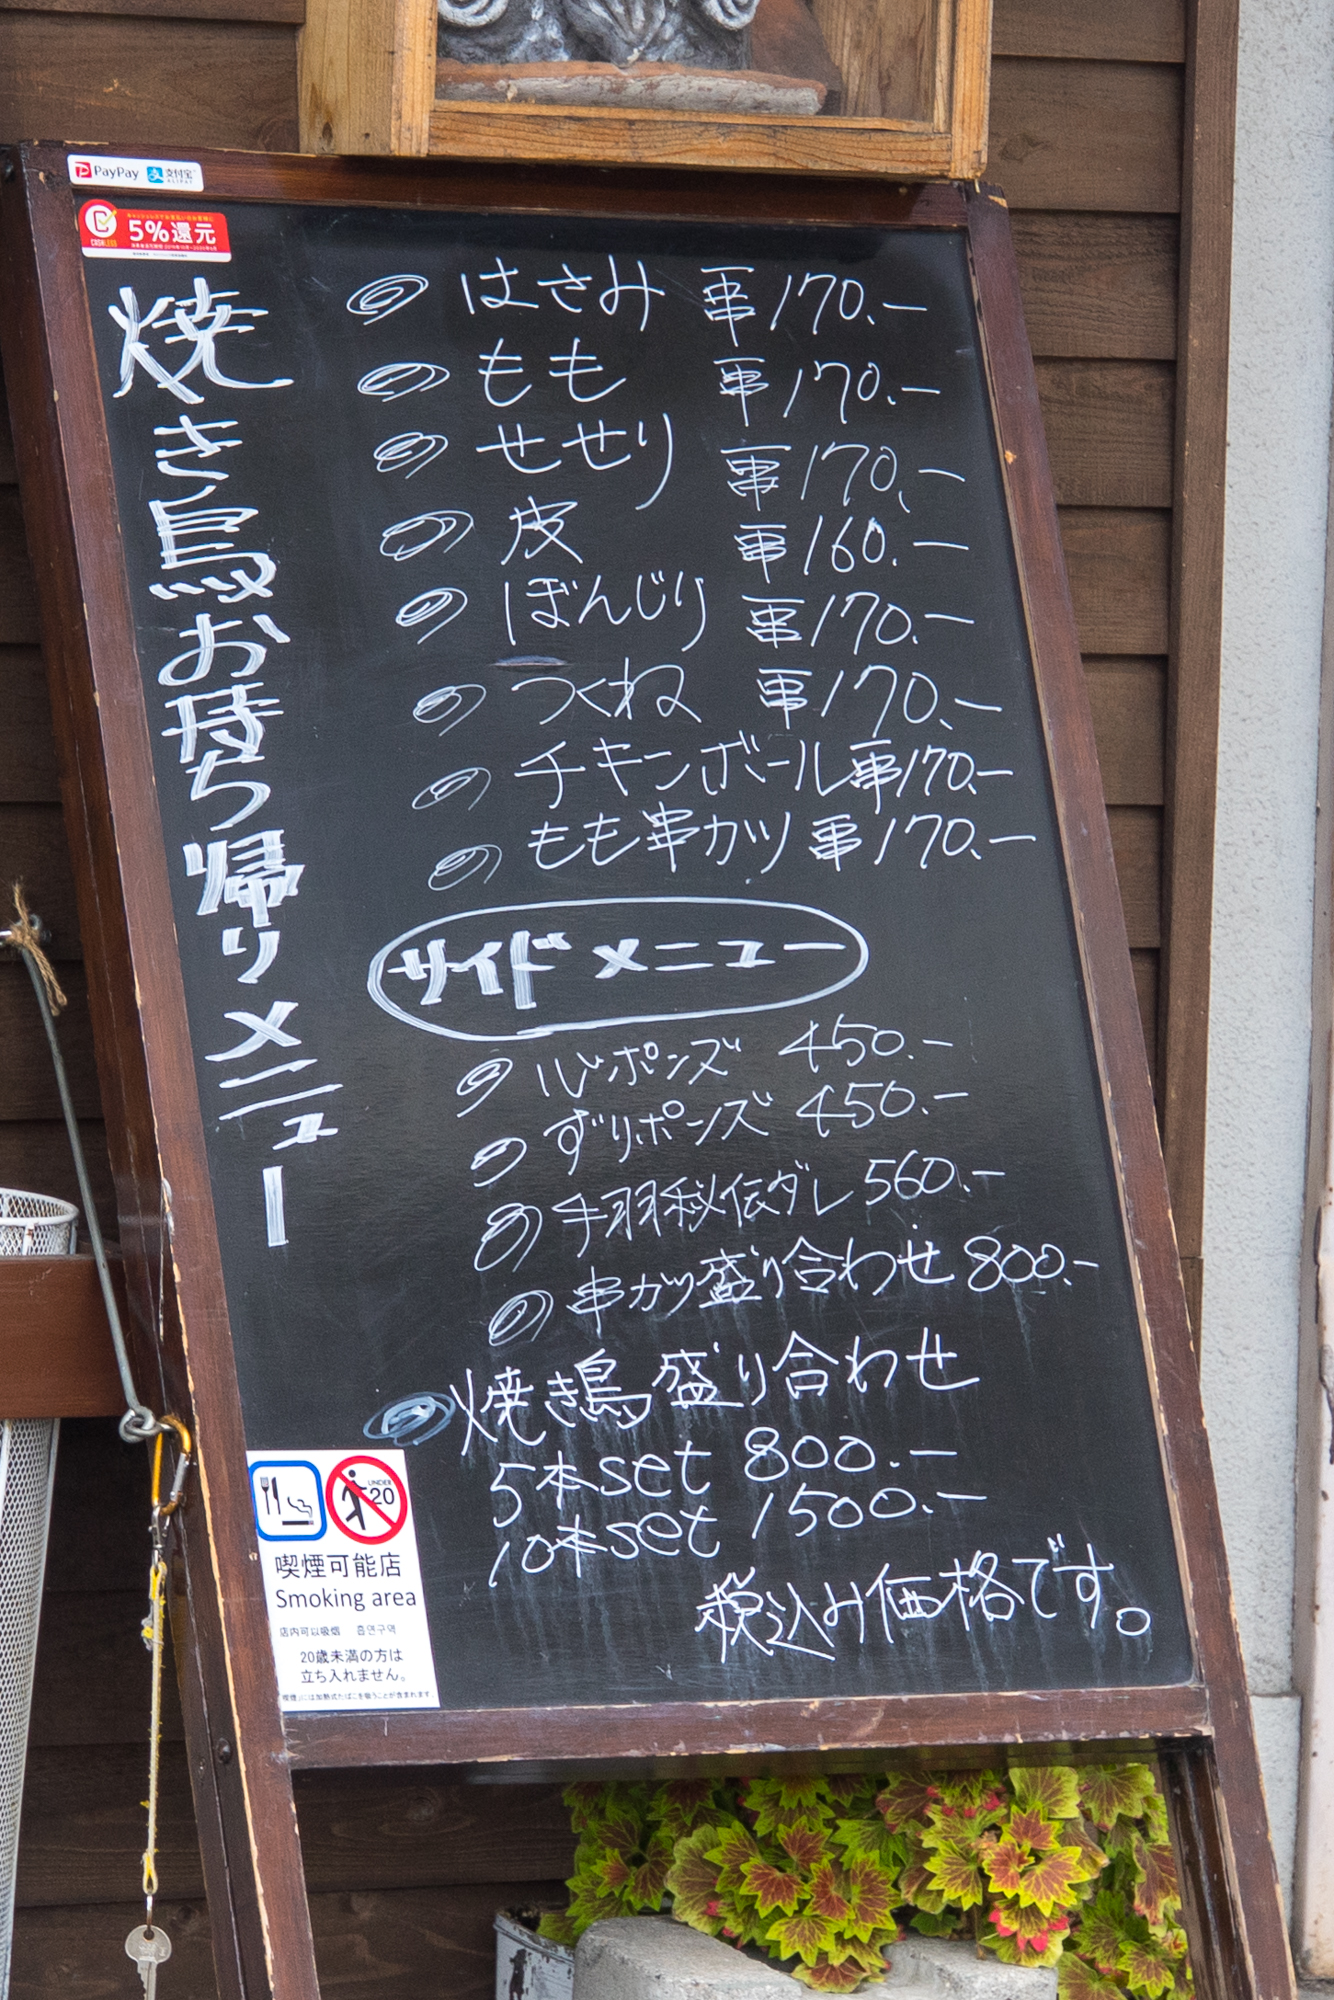 PayPay 支付宝 ALIPAY
CASHLESS 5%還元
焼き鳥お持ち帰りメニュー
はさみ 串170.-
もも 串170.-
せせり 串170.-
皮 串160.-
ぼんじり 串170.-
つくね 串170.-
チキンボール串170.-
もも串カツ 串170.-
サイドメニュー
ポンズ 450.-
ずりポンズ 450.-
手羽秘伝ダレ 560.-
串カツ盛り合わせ 800.-
焼き鳥盛り合わせ
5本set 800.-
10本set 1500.-
税込み価格です。
UNDER 20
喫煙可能店
Smoking area
店内可以吸烟 흡연구역
20歳未満の方は
立ち入れません。
喫煙」には加熱式たばこを吸うことが含まれます。